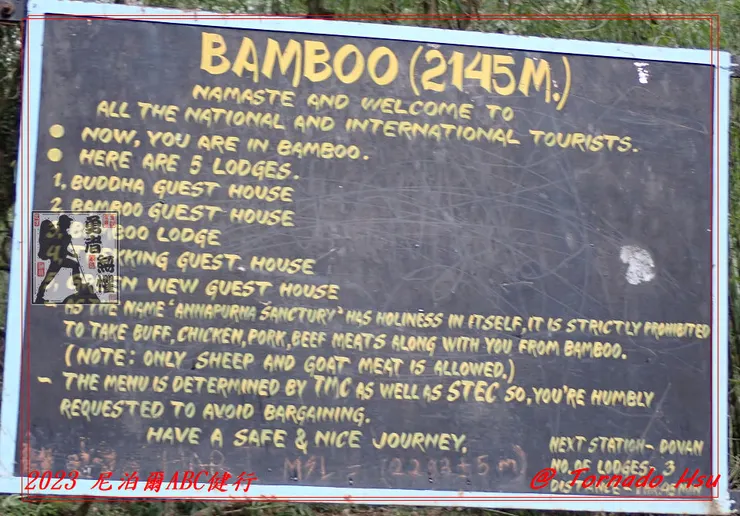 BAMBOO (2145M.)
NAMASTE AND WELCOME TO
ALL THE NATIONAL AND INTERNATIONAL TOURISTS.
NOW, YOU ARE IN BAMBOO.
HERE ARE 5 LODGES.
1. BUDDHA GUEST HOUSE
2. BAMBOO GUEST HOUSE
LODGE
GUEST HOUSE
VIEW GUEST HOUSE
- AS THE NAME 'ANNAPURNA SANCTURY' HAS HOLINESS IN ITSELF, IT IS STRICTLY PROHIBITED
TO TAKE BUFF, CHICKEN, PORK, BEEF MEATS ALONG WITH YOU FROM BAMBOO.
(NOTE: ONLY SHEEP AND GOAT MEAT IS ALLOWED.)
- THE MENU IS DETERMINED BY TMC AS WELL AS STEC SO, YOU'RE HUMBLY
REQUESTED TO AVOID BARGAINING.
HAVE A SAFE & NICE JOURNEY.
NEXT STATION- DOVAN
NO. OF LODGES. 3
2023 尼泊爾ABC健行
@ Tornado Hsu